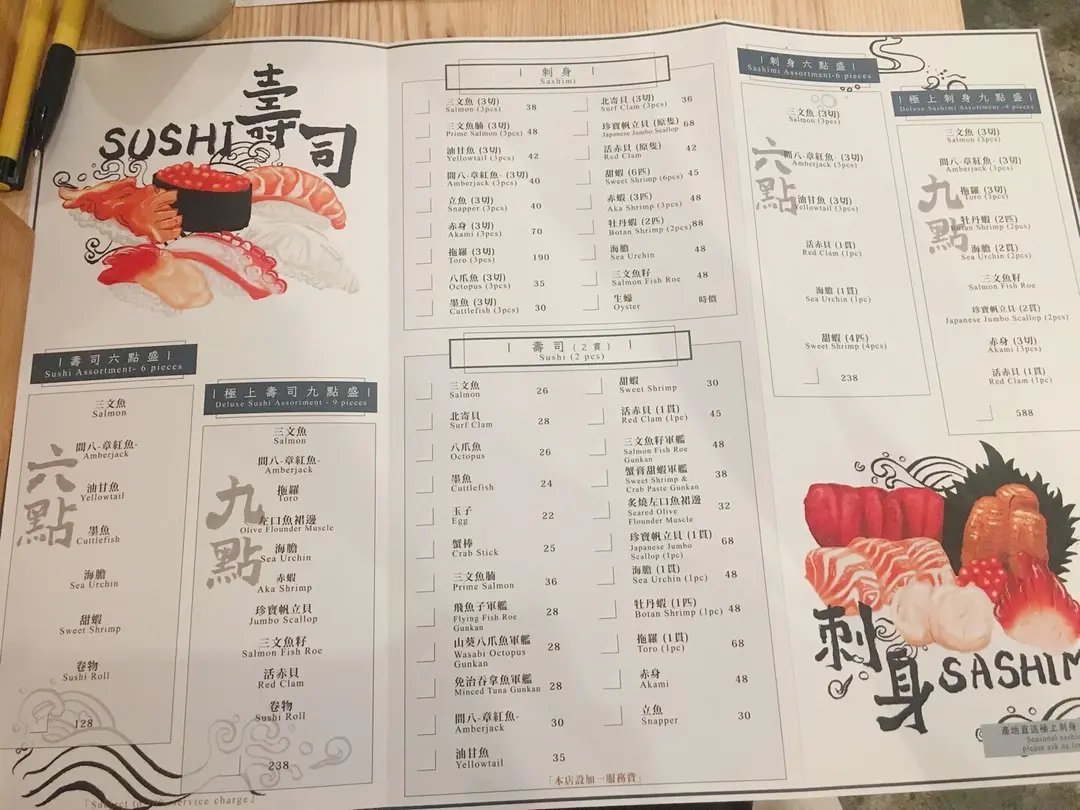 壽司
SUSHI
| 壽司六點盛 |
Sushi Assortment- 6 pieces
六點
三文魚
Salmon
間八-章紅魚-
Amberjack
油甘魚
Yellowtail
墨魚
Cuttlefish
海膽
Sea Urchin
甜蝦
Sweet Shrimp
卷物
Sushi Roll
128
| 極上壽司九點盛 |
Deluxe Sushi Assortment - 9 pieces
九點
三文魚
Salmon
間八-章紅魚-
Amberjack
拖羅
Toro
左口魚裙邊
Olive Flounder Muscle
海膽
Sea Urchin
赤蝦
Aka Shrimp
珍寶帆立貝
Jumbo Scallop
三文魚籽
Salmon Fish Roe
活赤貝
Red Clam
卷物
Sushi Roll
238
service charge
| 刺身 |
Sashimi
三文魚 (3切)
Salmon (3pcs) 38
三文魚腩 (3切)
Prime Salmon (3pcs) 48
油甘魚 (3切)
Yellowtail (3pcs) 42
間八-章紅魚- (3切)
Amberjack (3pcs) 40
立魚 (3切)
Snapper (3pcs) 40
赤身 (3切)
Akami (3pcs) 70
拖羅 (3切)
Toro (3pcs) 190
八爪魚 (3切)
Octopus (3pcs) 35
墨魚 (3切)
Cuttlefish (3pcs) 30
北寄貝 (3切)
Surf Clam (3pcs) 36
珍寶帆立貝 (原隻)
Japanese Jumbo Scallop 68
活赤貝 (原隻)
Red Clam 42
甜蝦 (6匹)
Sweet Shrimp (6pcs) 45
赤蝦 (3匹)
Aka Shrimp (3pcs) 48
牡丹蝦 (2匹)
Botan Shrimp (2pcs) 88
海膽
Sea Urchin 48
三文魚籽
Salmon Fish Roe 48
生蠔
Oyster 時價
| 壽司 (2貫) |
Sushi (2 pcs)
三文魚
Salmon 26
北寄貝
Surf Clam 28
八爪魚
Octopus 26
墨魚
Cuttlefish 24
玉子
Egg 22
蟹棒
Crab Stick 25
三文魚腩
Prime Salmon 36
飛魚子軍艦
Flying Fish Roe
Gunkan 28
山葵八爪魚軍艦
Wasabi Octopus
Gunkan 28
免治吞拿魚軍艦
Minced Tuna Gunkan 28
間八-章紅魚-
Amberjack 30
油甘魚
Yellowtail 35
甜蝦
Sweet Shrimp 30
活赤貝 (1貫)
Red Clam (1pc) 45
三文魚籽軍艦
Salmon Fish Roe
Gunkan 48
蟹膏甜蝦軍艦
Sweet Shrimp &
Crab Paste Gunkan 38
炙燒左口魚裙邊
Seared Olive
Flounder Muscle 32
珍寶帆立貝 (1貫)
Japanese Jumbo
Scallop (1pc) 68
海膽 (1貫)
Sea Urchin (1pc) 48
牡丹蝦 (1匹)
Botan Shrimp (1pc) 48
拖羅 (1貫)
Toro (1pc) 68
赤身
Akami 48
立魚
Snapper 30
「本店設加一服務費」
| 刺身六點盛 |
Sashimi Assortment-6 pieces
六點
三文魚 (3切)
Salmon (3pcs)
間八-章紅魚- (3切)
Amberjack (3pcs)
油甘魚 (3切)
Yellowtail (3pcs)
活赤貝 (1貫)
Red Clam (1pc)
海膽 (1貫)
Sea Urchin (1pc)
甜蝦 (4匹)
Sweet Shrimp (4pcs)
238
| 極上刺身九點盛 |
Deluxe Sashimi Assortment -9 pieces
九點
三文魚 (3切)
Salmon (3pcs)
間八-章紅魚- (3切)
Amberjack (3pcs)
拖羅 (3切)
Toro (3pcs)
牡丹蝦 (2匹)
Botan Shrimp (2pcs)
海膽 (2貫)
Sea Urchin (2pcs)
三文魚籽
Salmon Fish Roe
珍寶帆立貝 (2貫)
Japanese Jumbo Scallop (2pcs)
赤身 (3切)
Akami (3pcs)
活赤貝 (1貫)
Red Clam (1pc)
588
刺身
SASHIM
產地直送極上刺身
Seasonal
please ask